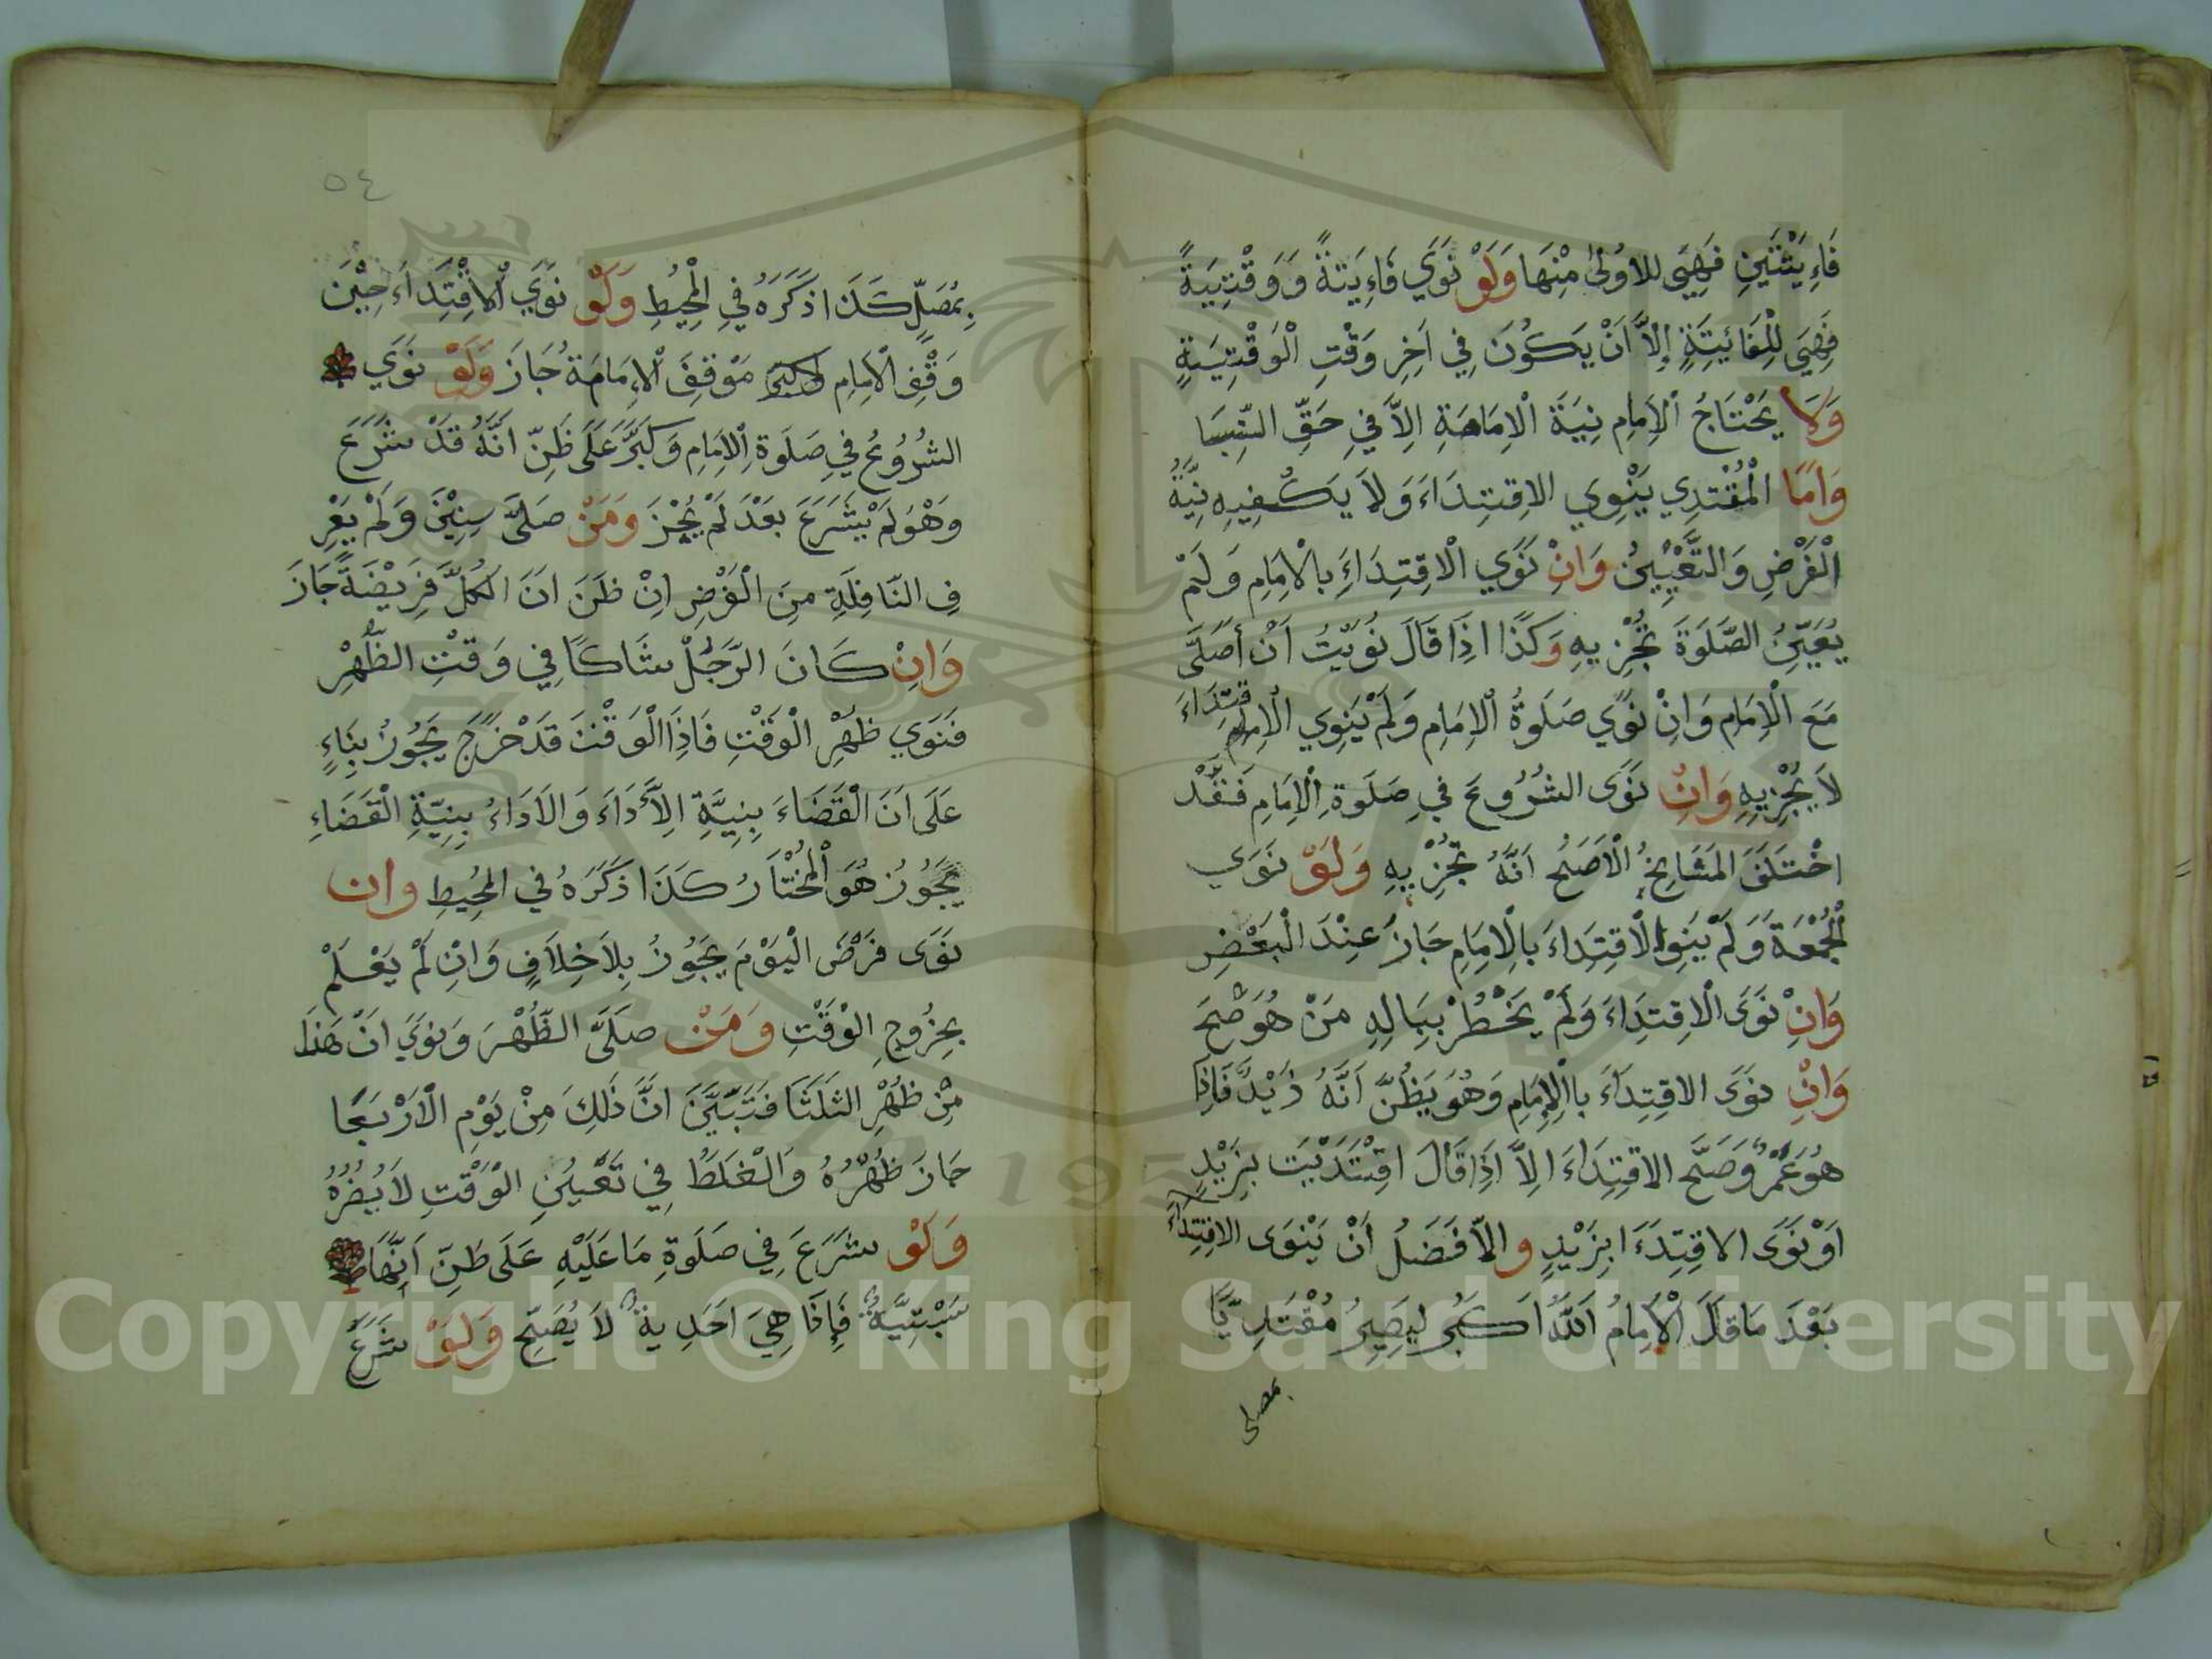 فَاءِيْتَتَيْنِ فَهِيَ للاوُلىٰ مِنْهَا وَلَوْ نَوَي فَاءِيَتةً وَوَقْتِيَةً
فَهِيَ لِلْفَائَيِتَةِ إِلاَّ اَنْ يَكُونَ فِي اَخِرِ وَقْتِ الْوَقْتِيَةِ
وَلاَ يَحْتَاجُ الْاِمَامِ نِيَةَ الْاِمَامَةِ اِلاَّ فِي حَقِّ النِّسَا
وَاَمَّا الْمُقْتَدِي يَنْوِي الاِقتِدَاءَ وَلاَ يَكْفِيهِ نِيَّةُ
الْفَرْضِ وَالتَّعْيِينُ وَاِنْ نَوَي الْاقِتِدَاءَ بالْامَامِ وَلَمْ
يُعَيِّنُ الصَّلَوةَ تُجْزِيهِ وَكَذَا اِذَا قَالَ نَوَيْتُ اَنْ أُصَلَّى
مَعَ الْاِمَامِ وَاِنْ نَوَي صَلَوةُ الْاِمَامِ وَلَمْ يَنِوِي الْاِقتِدَاءَ
لاَ يُجْزِيهِ وَاِنْ نَوَى الشُرُوعَ فِي صَلَوةِ الْاِمَامِ فَقَدْ
اخْتَلَفَ المَشَايِخُ الْاَصَحُ اَنَّهُ تُجْزِيهِ وَلَوْ نَوَي
الْجُمْعَةَ وَلَمْ يَنِو الْاقِتِدَاءَ بالِامَامِ جَازَ عِنْدَ الْبَعْضِ
وَاِنْ نَوَى الْاِقتِدَاءَ وَلَمْ يَخْطُرْ بِبَالِهِ مَنْ هُوَ صَحَ
وَاِنْ نَوَى الاقِتِدَاءَ باالْاِمَامِ وَهُوَ يَظُنَّ اَنَّهُ زَيْدٌ فَاِذَا
هُوَ عَمْرٌ وَصَحَّ الاقِتِدَاءَ اِلاَّ اِذَا قَالَ اقِتْتَدَيْتَ بِزَيْدٍ
اَوْ نَوَى الاقِتِدَءَ ابِزَيْدٍ والاَّفْضَلُ اَنْ يَنْوَى الاقتِدَاءَ
بَعْدَ مَا قَالَ الْاِمَامُ اَللّٰهُ اَكْبَرُ لِيَصِيرُ مُقْتَدِيًّا
بمصلى
٥٤
بِمُصَلٍّ كَذَا ذَكَرَهُ فِي الْمحِيُطِ وَلَوْ نَوَي اْلاقْتِدَاءَ حِيْنَ
وَقْفِ الْاِمَامِ مَوْقِفَ الْاِمَامَةُ جَازَ وَلَوْ نَوَي
الشُرُوعُ فِي صَلَوةِ الْاِمَامِ وَكَبَّرَ عَلَى ظَنِّ اَنَّهُ قَدْ شَرَعَ
وَهْوَ لَمْ يْشَرَعَ بَعْدَ لَمْ يُجْزَ وَمَنْ صَلَّى سِنِيْنَ وَلَمْ يَعْرِ
فِ النَّافِلَةِ مِنَ الْفَرْضِ اِنْ ظَنَ اَنَ الكُلَّ فَرِيْضَةً جَازَ
وَاِنْ كَانَ الرَّجُلُ شَاكًا فِي وَقْتِ الظُّهْرِ
فَنَوَي ظُهْرِ الْوَقْتِ فَاِذَا الْوَقْتَ قَدْ خَرَجَ يَجُوزُ بِنَاءٍ
عَلَى اَنَ الْقَضَاءَ بِنِيَّةِ الاَّدَاءَ وَالاَدَاءُ بِنِيَّةِ الْقَضَاءِ
يَجُوزُ هُوَ الْمُخْتَارُ كَذَا ذَكَرَهُ فِي المْحُيِطِ وان
نَوَى فَرْضَ الْيَوْمَ يَجُوزُ بِلاَ خِلاَفٍ وَاِنْ لَمْ يَعْلَمْ
بِخِرُوجِ الْوَقْتِ وَمَنْ صَلَّى الظُّهْرَ وَنَوَي اَنْ هَذَا
مِنْ ظُهْرِ الثَلَثَا فَتَبَيَّنَ انَّ ذَلِكَ مِنْ يَوْمِ الْاَرْبَعَا
جَازَ ظُهْرُهُ وَالْغَلَطُ فِي تَعْيُنِ الْوَقْتِ لاَ يُضُرُهُ
وَلَوْ شَرَعَ فِي صَلَوةِ مَا عَلَيْهِ عَلَى ظَنِّ اَنَّهَا
سَبْتِيَّةٌ فَإِذَا هِيَ احَدِيةٌ لاَ يُصَحّ وَلَوْ شَرَعَ
Copyright © King Saud University
195